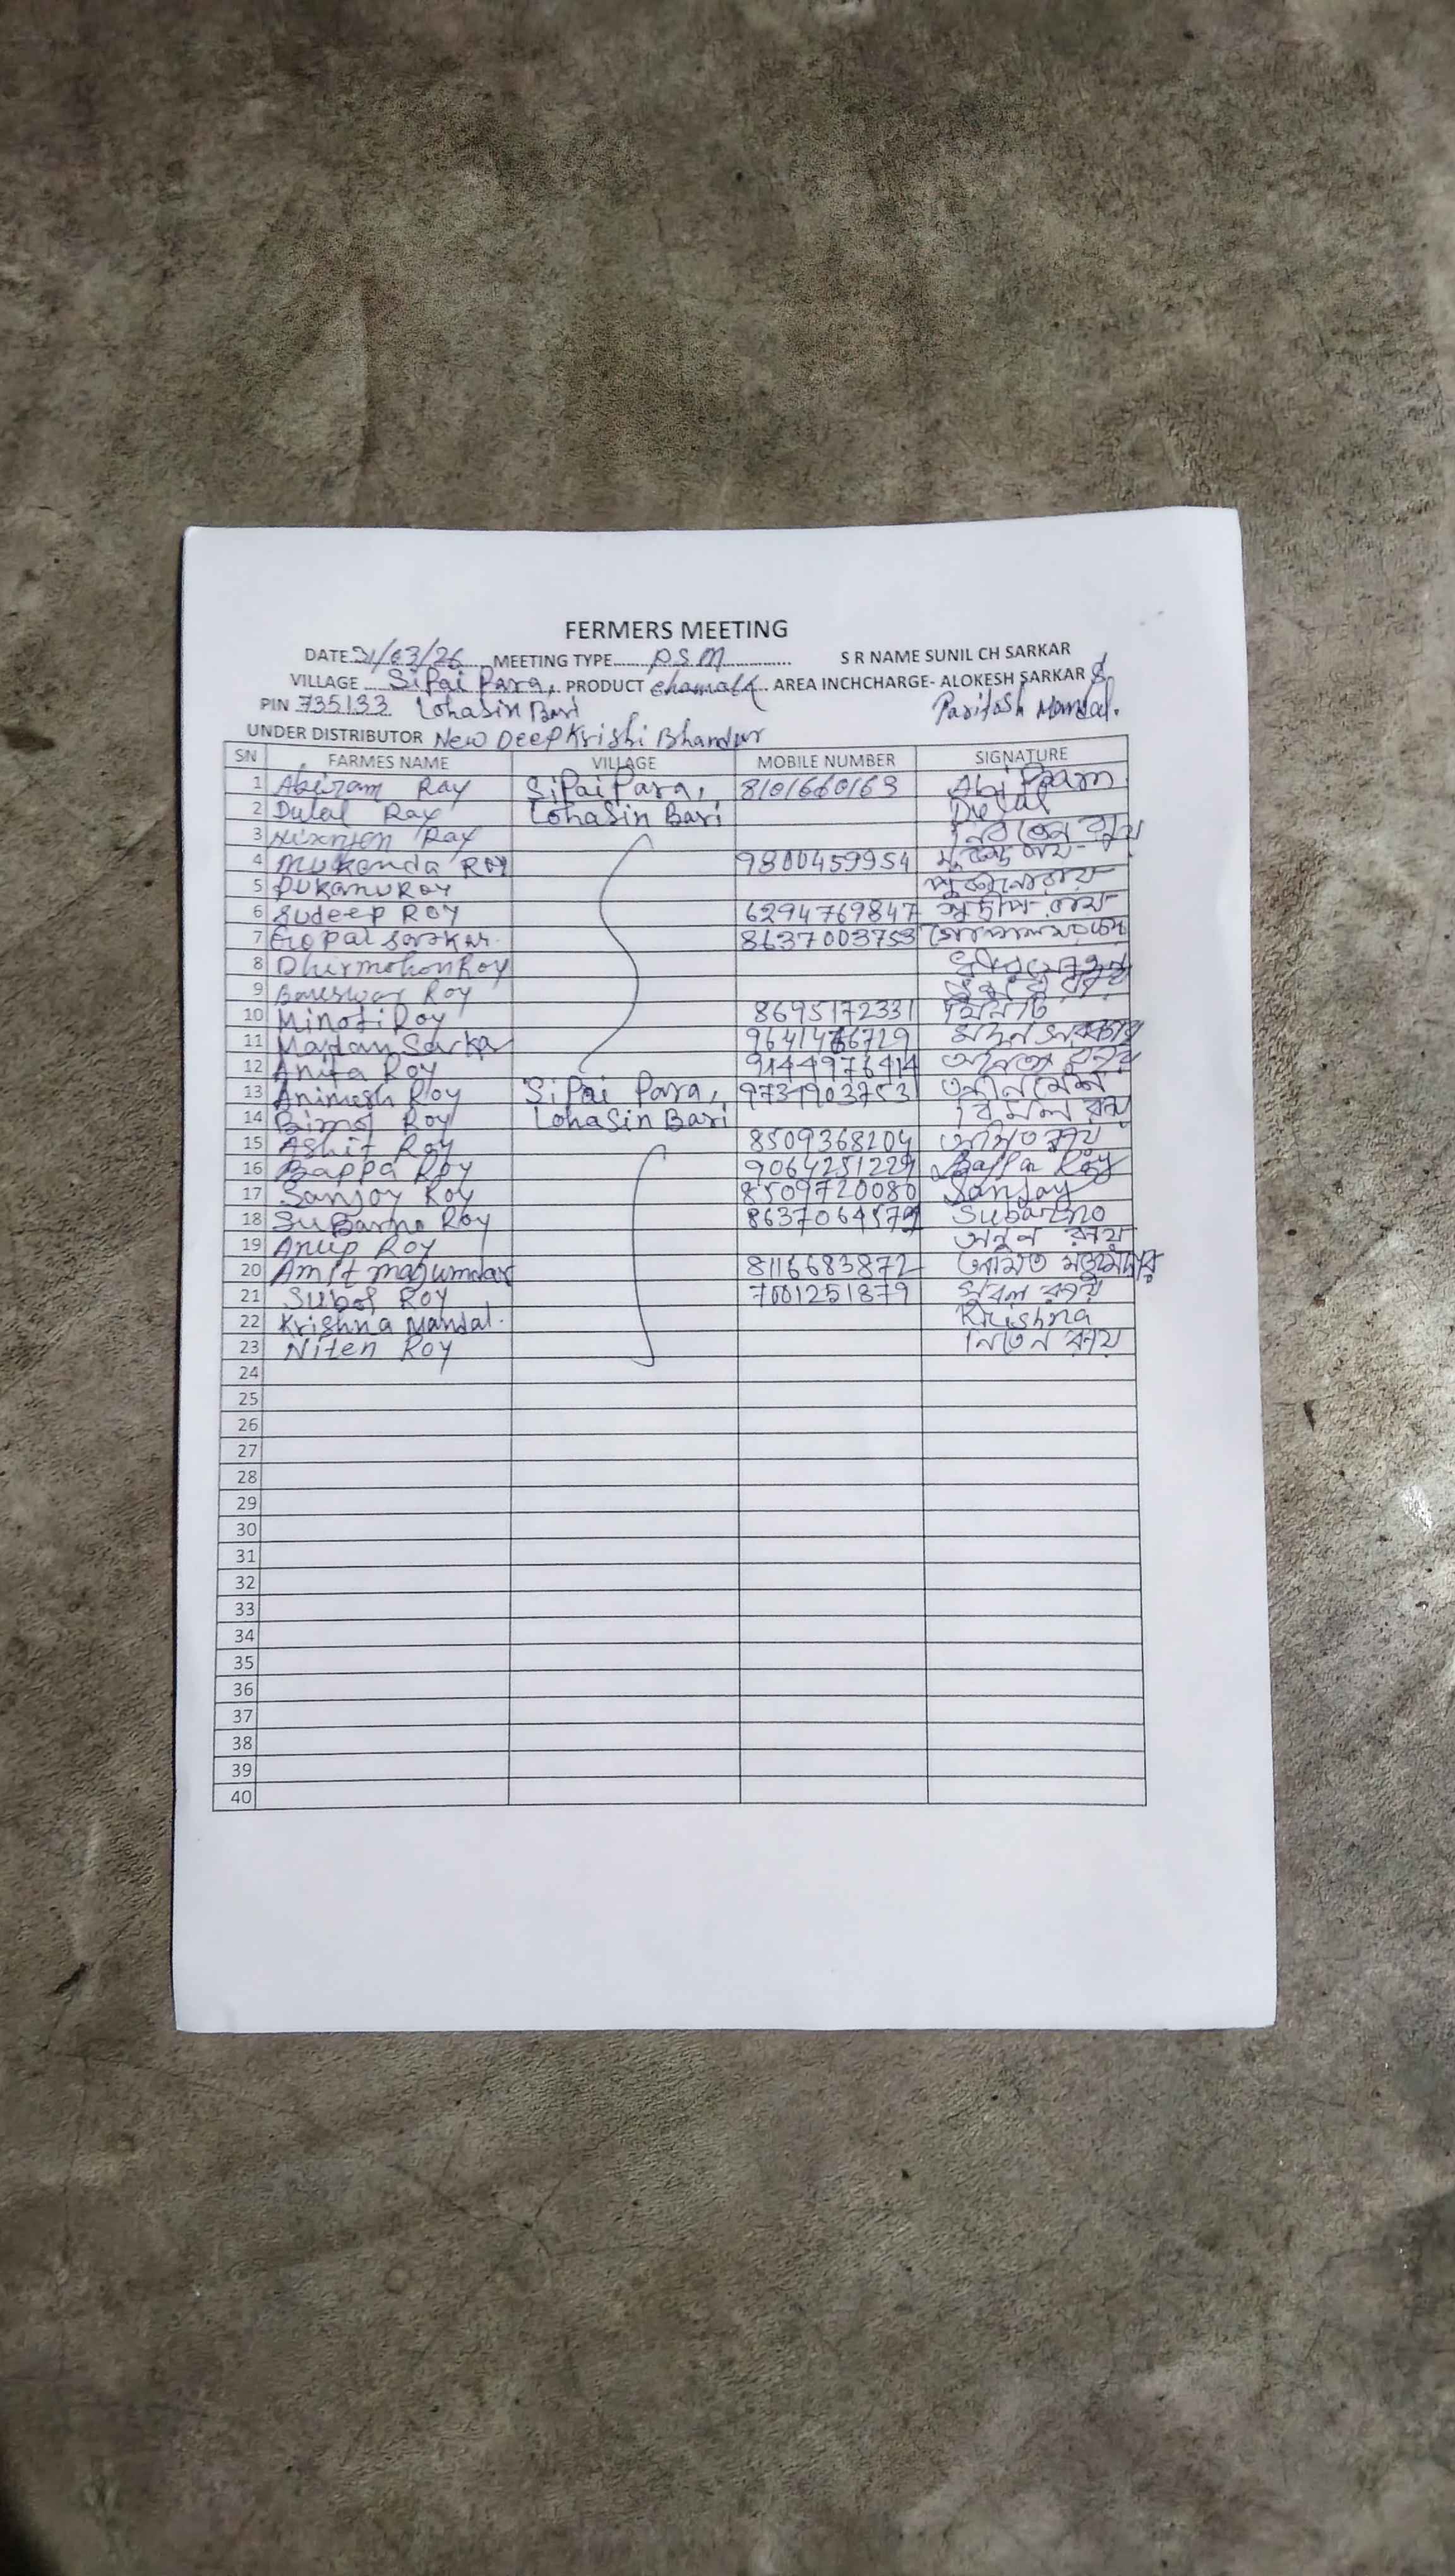 FERMERS MEETING
DATE 31/03/26 MEETING TYPE PSM S R NAME SUNIL CH SARKAR
VILLAGE SiPai Para, PRODUCT AREA INCHCHARGE- ALOKESH SARKAR &
PIN 735133 LohaSin Bari Paritosh Mandal.
UNDER DISTRIBUTOR New Deep Krishi Bhandar
SN FARMES NAME VILLAGE MOBILE NUMBER SIGNATURE
1 Abiram Ray SiPai Para, 8101660163 Abi Raam
2 Dulal Ray LohaSin Bari Dulal
3 Ray
4 Mukanda Roy 9800459954
5 Pukanu Roy
6 Sudeep Roy 6294769847 সুদীপ রায়
7 Gopal Sarkar 8637003753
8 Dhirmohon Roy
9 Roy
10 Minoti Roy 8695172331 মিনতি
11 Madan Sarkar মদন সরকার
12 Anita Roy অনিতা রায়
13 Animesh Roy SiPai Para,
14 Bimal Roy LohaSin Bari বিমল রায়
15 Ashit Roy 8509368204 অসিত রায়
16 Bappa Roy Bappa Roy
17 Sanjoy Roy 8509720080 Sanjay
18 SuBarno Roy Subarno
19 Anup Roy অনুপ রায়
20 Amit Majumdar 8116683872 অমিত মজুমদার
21 Subol Roy 7001251879 সুবল রায়
22 Krishna Mandal. Krishna
23 Niten Roy নিতেন রায়
24
25
26
27
28
29
30
31
32
33
34
35
36
37
38
39
40